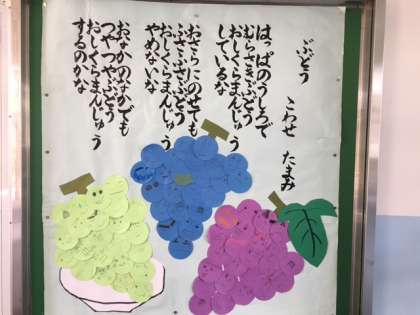 ぶどう
こわせ たまみ
はっぱのうしろで
むらさきぶどう
おしくらまんじゅう
しているな
おさらにのせても
ふさふさぶどう
おしくらまんじゅう
やめないな
おなかのなかでも
つやつやぶどう
おしくらまんじゅう
するのかな